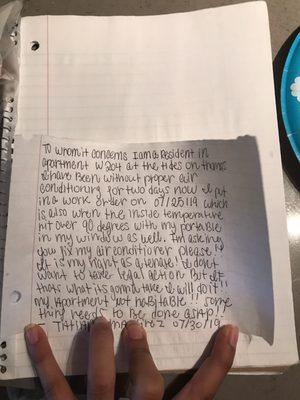 To whom it concerns I am a resident in
apartment W204 at the tides on thomas
I have been without proper air
conditioning for two days now I put
in a work order on 07/25/19 which
is also when the inside temperature
hit over 90 degrees with my portable
in my window as well. I'm asking
you fix my air conditioner please!!
It is my right as a tenate! I don't
want to take legal action But if
thats what its gonna take I will do it!!
my apartment not habitable!! some
thing needs to be done ASAP!!
07/30/19